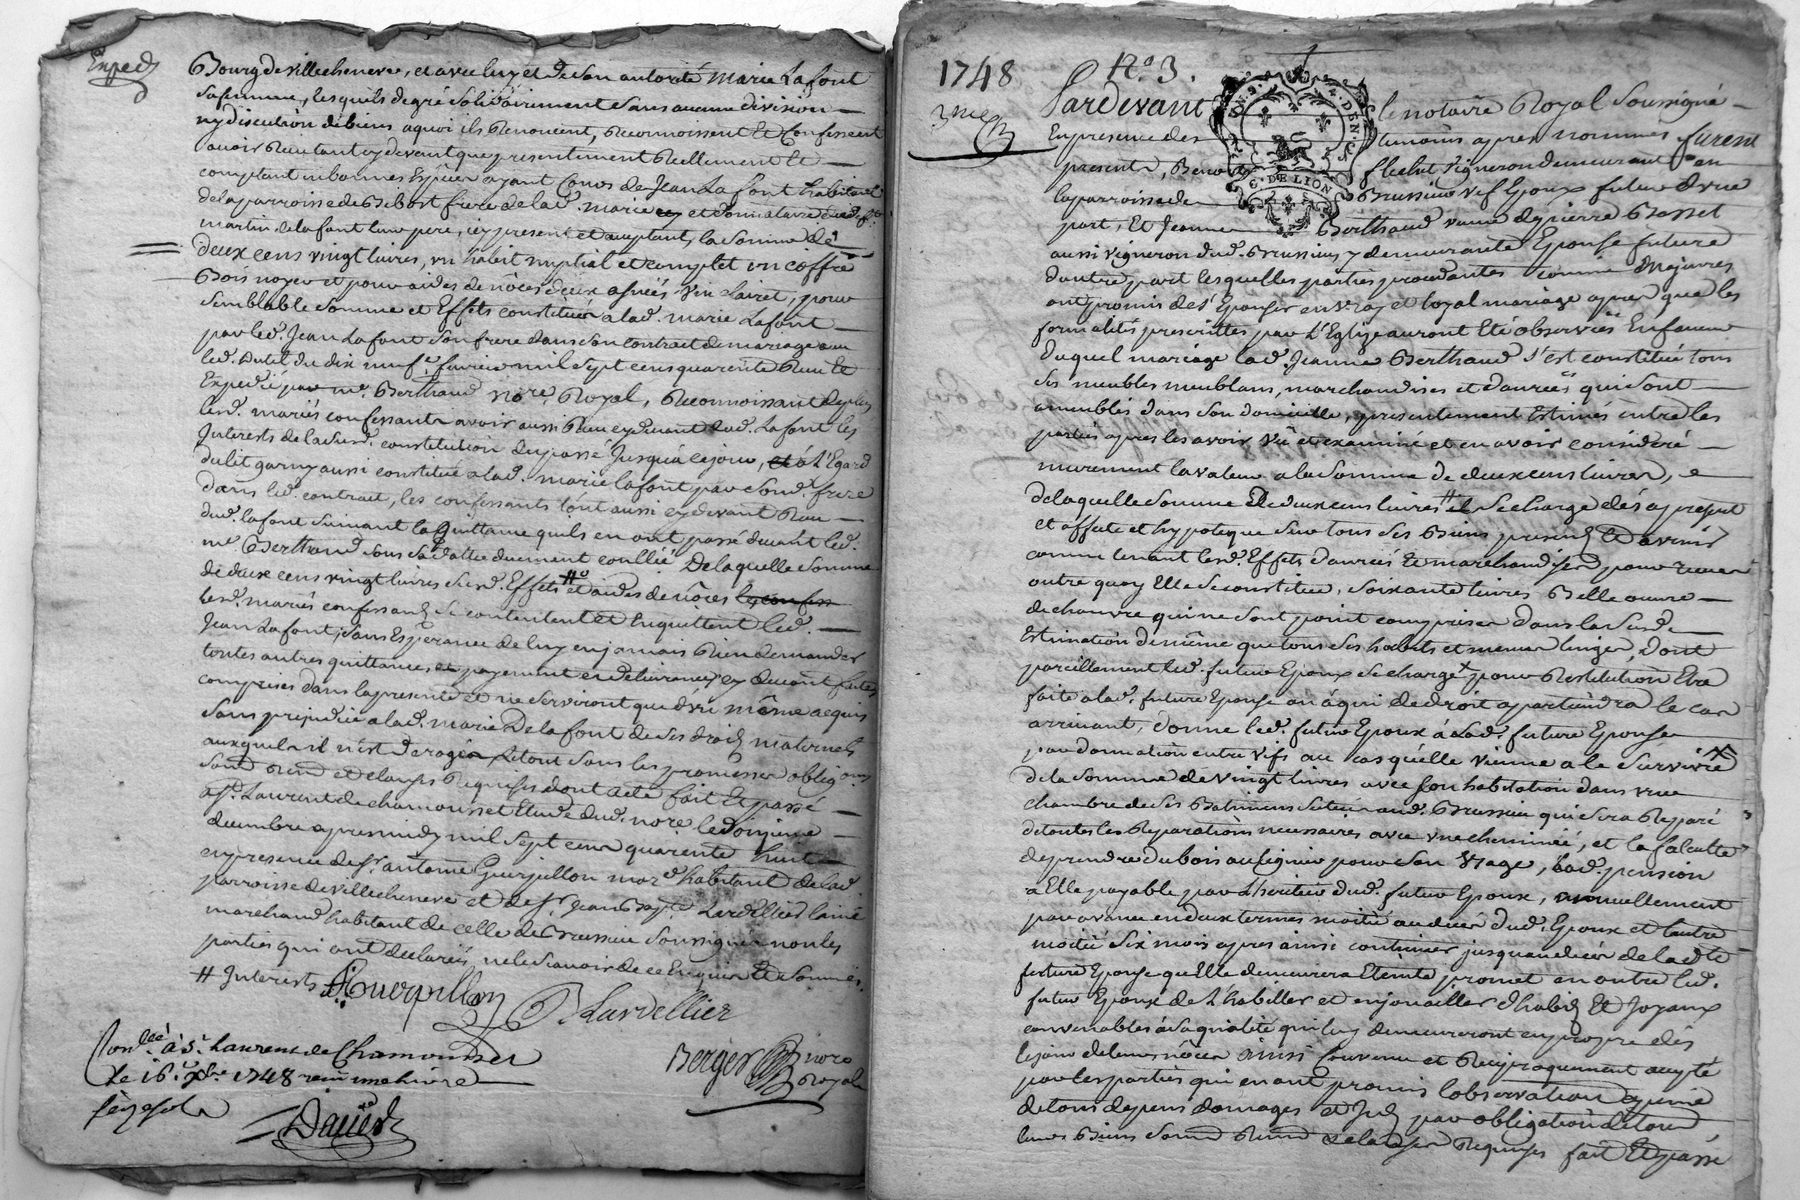 Exped
Bourg de villecheneve, et avec luy et de son autorité marie Lafont
sa femme, lesquels de gré solidairement sans aucune division
ny discution de biens a quoi ils Renoncent, Reconnoissent Et Confessent
avoir Reçu tant cy devant que presentement Reellement Et
comptant en bonnes Espèces ayant Cours de Jean Lafont habitant
de la parroisse de Bibost frere de lad. marie et donnataire dud. Sr.
martin de lafont leur pere, icy present et acceptant, la somme de
deux cens vingt livres, un habit nuptial et complet un coffre
Bois noyer et pour aides de nôces deux asnées vin Clairet, pour
semblable somme et Effets constitués a lad. marie Lafont
par led. Jean Lafont son frere dans son contrat de mariage avec
led. Dutel du dix neuf fevrier mil sept cens quarente Reçu Et
Expedié par me. Berthaud nore. Royal, Reconnoissant de plus
lesd. mariés confessants avoir aussi Reçu cy devant dud. Lafont les
Interests de lad. susd. constitution du passé jusqu'a ce jour, et a L'Egard
du lit garny aussi constitué a lad. marie lafont par sond. frere
dans led. contrat, les confessants l'ont aussi cy devant Reçu
dud. lafont suivant la Quittance quils en ont passé devant led.
me. Berthaud sous sa datte duement conllée De laquelle somme
de deux cens vingt livres susd. Effets # et aides de nôces les confess
lesd. mariés confessants se contentent et Enquittent led.
Jean Lafont, sans Esperance de luy en jamais Rien demander
toutes autres quittances, et payement et delivrances cy devant faites
comprises dans la presente et ne serviront que d'un même acquis
sans prejudice a lad. marie De lafont de ses droits maternels
auxquels il n'est derogé Et tout sous les promesses obligons
soub. Renon. et clauses Requises dont acte fait Et passé
a St. Laurent de chamousset Etude dud. nore. le douzieme
decembre apres midy mil sept cens quarente huit
en presence de sr. antoine Guerpillon mard. habitant de lad.
parroisse de villecheneve et de sr. Jean Bapt. Lardellier l'ainé
marchand habitant de celle de Brussieu soussignes non les
parties qui ont declarés ne le scavoir de ce Enquis Et sommés.
# Interests
Guerpillon
Lardellier
Berger nore Royal
Conllé à St. Laurent de Chamousset
le 16e. xbre 1748 reçu une livre
1748
No. 3.
Pardevant le notaire Royal soussigné
En presence des temoins apres nommés furent
present, Benoit flechet vigneron demeurant en
la parroisse de Brussieu vef Epoux futur d'une
part, Et Jeanne Berthaud veuve de pierre Basset
aussi vigneron dud. Brussieu y demeurante Epouse future
dautre part lesquelles parties procedantes comme majeures
ont promis de s'Epouser en vray et loyal mariage apres que les
formalités prescrittes par L'Eglise auront été observées En faveur
duquel mariage lad. Jeanne Berthaud s'est constituée tous
ses meubles meublans, marchandises et danrées qui sont
ameublés dans son domicille, presentement Estimés entre les
parties apres les avoir vû et examiné et en avoir consideré
meurement la valeur a la somme de deux cens livres,
de laquelle somme de deux cens livres # il se charge dés a present
et affecte et hypoteque sur tous ses Biens presents Et avenir
comme tenant lesd. Effets danrées Et marchandises pour receu
outre quoy Elle se constitue, soixante livres Belle œuvre
de chanvre qui ne sont point comprises dans la susd.
Estimation de même que tous ses habits et menus linges, dont
pareillement led. futur Epoux se charge x pour Restitution Etre
faite a lad. future Epouse ou à qui de droit apartiendra le cas
arrivant, donne led. futur Epoux à lad. future Epouse
par donnation entre vifs au cas qu'elle vienne a le survivre x
de la somme de vingt livres avec son habitation dans une
chambre de ses Batimens situés aud. Brussieu qui sera Reparé
de toutes les Reparations necessaires avec une cheminée, et la faculté
de prendre du bois au Signier pour son Usage, lad. pension
a Elle payable par L'heritier dud. futur Epoux, annuellement
par avance en deux termes moitié au deces dud. Epoux et l'autre
moitié six mois apres ainsi continuer jusqu'au deces de lad.
future Epouse qu'elle demeurera Eteinte, promet en outre led.
futur Epoux de l'habiller et enjoailler d'habits Et joyaux
convenables à sa qualité qui luy demeureront en propre dès
le jour de leurs nôces ainsi Convenu et Reciproquement accepté
par les parties qui en ont promis l'observation a peine
de tous depens domages et Jnts par obligation de tous
leurs Biens soumis. Renon. et clauses Requises fait Et passé
C. DE LION